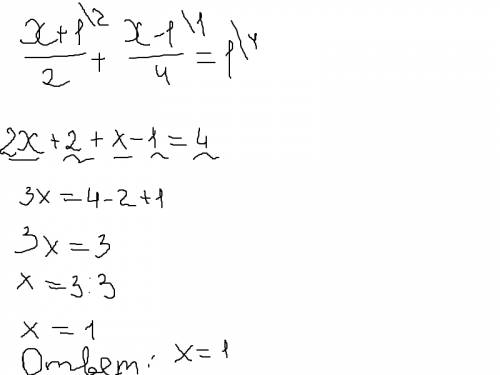 (x+1)\2 / 2 + (x-1)\1 / 4 = 1\4
2x + 2 + x - 1 = 4
3x = 4 - 2 + 1
3x = 3
x = 3:3
x = 1
Ответ: x = 1